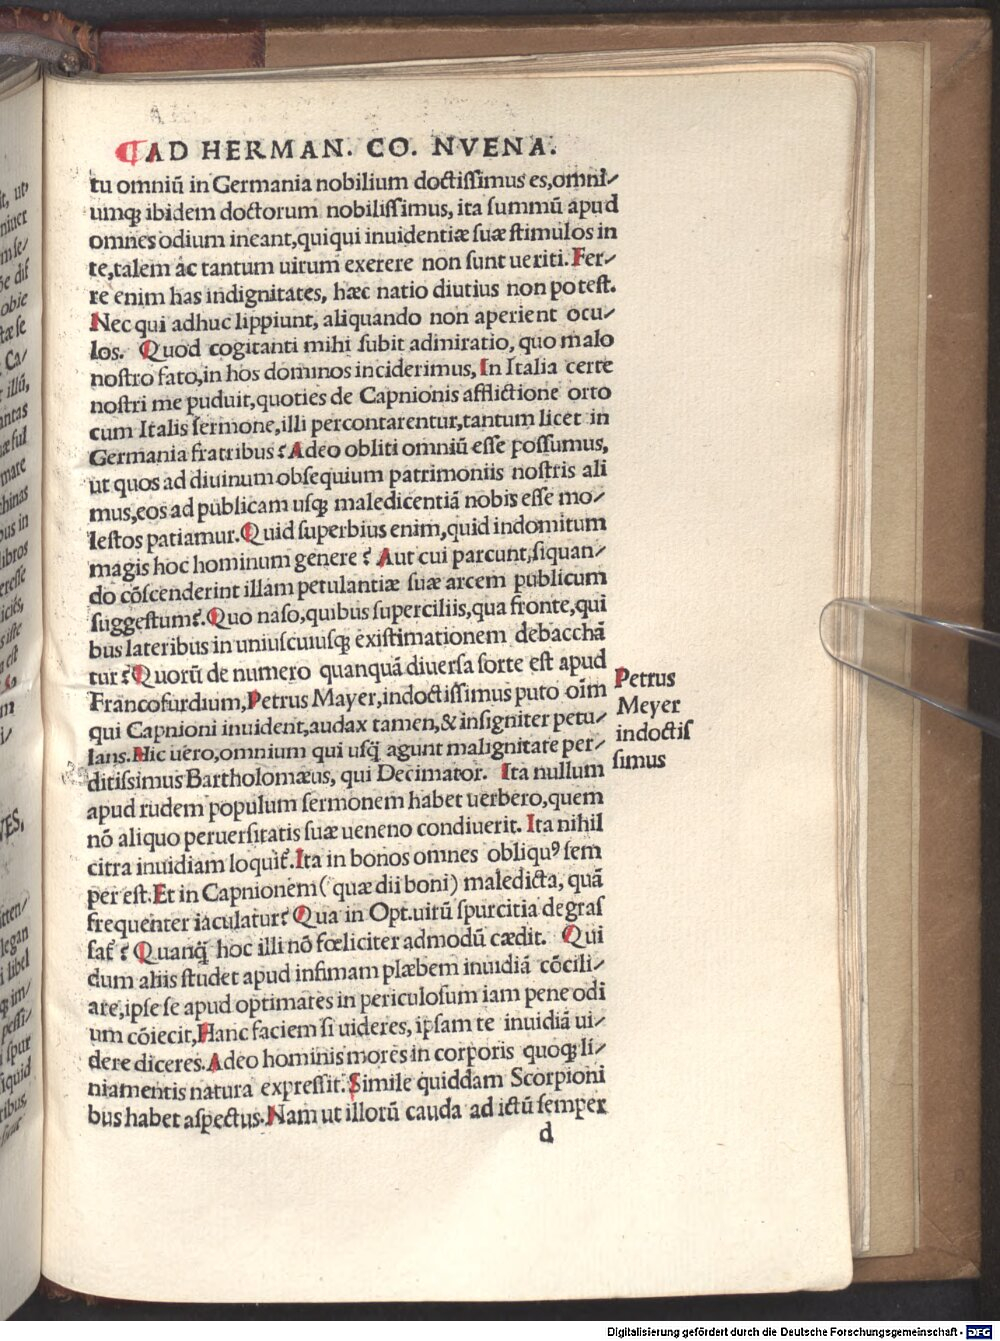 ¶AD HERMAN. CO. NVENA.
tu omniū in Germania nobilium doctiſſimus es,omni/
umq; ibidem doctorum nobiliſſimus, ita ſummū apud
omnes odium ineant,quiqui inuidentiæ ſuæ ſtimulos in
te,talem ac tantum uirum exerere non ſunt ueriti. Fer/
re enim has indignitates, hæc natio diutius non poteſt.
Nec qui adhuc lippiunt, aliquando non aperient ocu/
los. Quod cogitanti mihi ſubit admiratio, quo malo
noſtro fato,in hos dominos inciderimus, In Italia certe
noſtri me puduit,quoties de Capnionis afflictione orto
cum Italis ſermone,illi percontarentur,tantum licet in
Germania fratribus? Adeo obliti omniū eſſe poſſumus,
ut quos ad diuinum obſequium patrimoniis noſtris ali
mus,eos ad publicam uſq; maledicentiā nobis eſſe mo/
leſtos patiamur. Quid ſuperbius enim,quid indomitum
magis hoc hominum genere? Aut cui parcunt,ſiquan/
do cōſcenderint illam petulantiæ ſuæ arcem publicum
ſuggeſtum?. Quo naſo,quibus ſuperciliis,qua fronte,qui
bus lateribus in uniuſcuiuſq; exiſtimationem debacchā
tur? Quorū de numero quanquā diuerſa ſorte eſt apud
Francofurdium,Petrus Mayer,indoctiſſimus puto oīm
qui Capnioni inuident,audax tamen,& inſigniter petu/
lans. Hic uero,omnium qui uſq̄ agunt malignitate per/
ditiſſimus Bartholomæus, qui Decimator. Ita nullum
apud rudem populum ſermonem habet uerbero,quem
nō aliquo peruerſitatis ſuæ ueneno condiuerit. Ita nihil
citra inuidiam loquit̄. Ita in bonos omnes obliquꝰ ſem
per eſt. Et in Capnionem (quæ dii boni) maledicta, quā
frequenter iaculatur? Qua in Opt.uirū ſpurcitia degraſ
ſat̄? Quanq̄ hoc illi nō fœliciter admodū cædit. Qui
dum aliis ſtudet apud infimam plæbem inuidiā cōcili/
are,ipſe ſe apud optimates in periculoſum iam pene odi
um cōiecit, Hanc faciem ſi uideres, ipſam te inuidiā ui/
dere diceres. Adeo hominis mores in corporis quoq; li/
niamentis natura expreſſit. Simile quiddam Scorpioni
bus habet aſpectus. Nam ut illorū cauda ad ictū ſemper
d
Petrus
Meyer
indoctiſ
ſimus
Digitalisierung gefördert durch die Deutsche Forschungsgemeinschaft - DFG